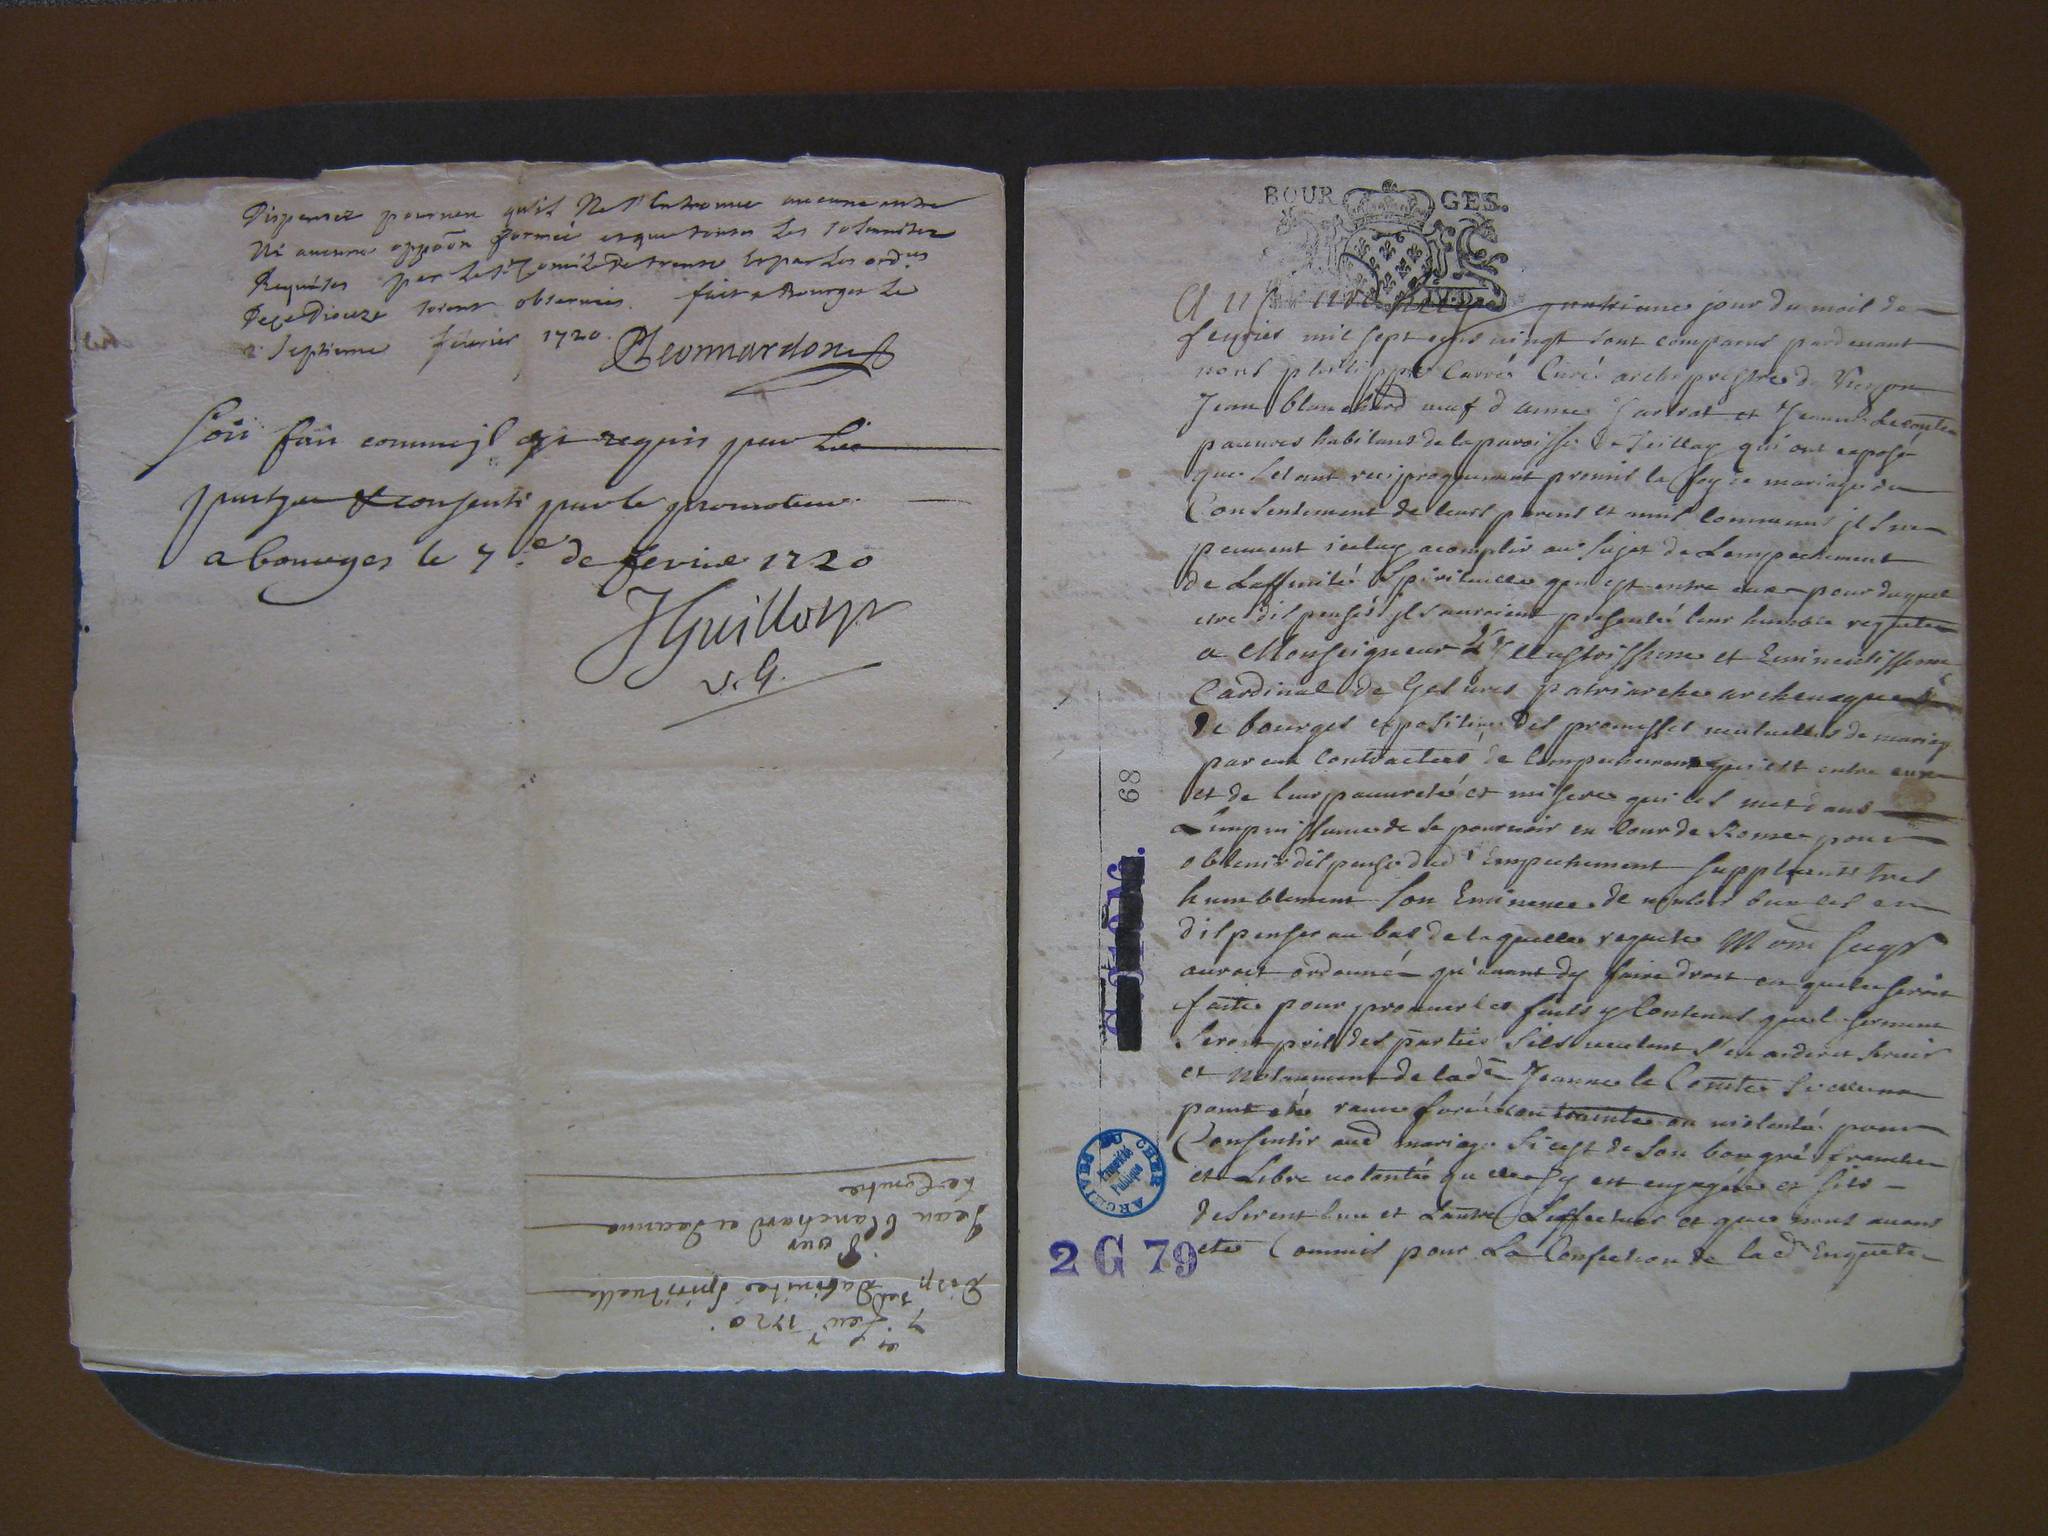 Dispensez pourveu qu'il Ne s'Entrouve aucune autre
Ni aucune oppõon formée et que toutes Les solemnitez
Requises par Le St Concile de trente Et par Les ordces
De ce Dioceze soient observées. fait a Bourges Le
Septieme février 1720.
Soit fait comme jl est requis par
consenti par le promoteur.
a bourges le 7e de fevrier 1720
JGuillot
v.G.
7 fevr 1720
Disp Dafinité Spirituelle
Pour
Jean Blanchard et Jeanne
Le Comte
BOURGES.
quatriemes jour du mois de
feuvrier mil sept cens vingt sont comparus pardevant
nous phelippes Carré Curé archiprestre de Vierzon
Jean blanchard veuf d'anne et Jeanne Lecomte
pauvres habitans de la paroisse de Teillay qui ont exposé
que setant reciproquement promis la foy de mariage du
Consentement de leurs parens et amis communs jls ne
peuvent jceluy acomplir au sujet de Lempechement
de Laffinité Spirituelle qui est entre eux pour duquel
etre dispensés jls auroient presenté leur humble requete
a Monseigneur Lillustrissime et Eminentissime
Cardinal de Gesvres patriarche archeveque
de bourges expositive des promesses mutuelles de mariage
par eux contractées de Lempechement qui est entre eux
et de leur pauvreté et misere qui les met dans
Limpuissance de se pourvoir en Cour de Rome pour
obtenir dispense dud Empechement suppliants tres
humblement Son Eminence de vouloir bien les en
dispenser au bas de laquelle requete
auroit ordonné qu'avant dy faire droit enquete seroit
faite pour prouver les faits y Contenus que le serment
seroit pris des parties Sils veulent s'en aider et servir
et notamment de lade Jeanne le Comte Si elle na
point eté ravie forcée contrainte ou violentée pour
Consentir aud mariage Si cest de Son bon gré franche
et Libre volonté qu elle sy est engagée et Sils
desirent lun et Lautre Leffectuer et que nous avons
eté Commis pour La Confection de lad Enquete
68
ARCHIVES DU CHER
Propriété
Publique
2 G 79